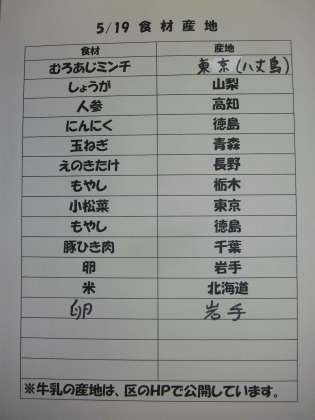 5/19 食材産地
食材 産地
むろあじミンチ 東京(八丈島)
しょうが 山梨
人参 高知
にんにく 徳島
玉ねぎ 青森
えのきたけ 長野
もやし 栃木
小松菜 東京
もやし 徳島
豚ひき肉 千葉
卵 岩手
米 北海道
卵 岩手
※牛乳の産地は、区のHPで公開しています。